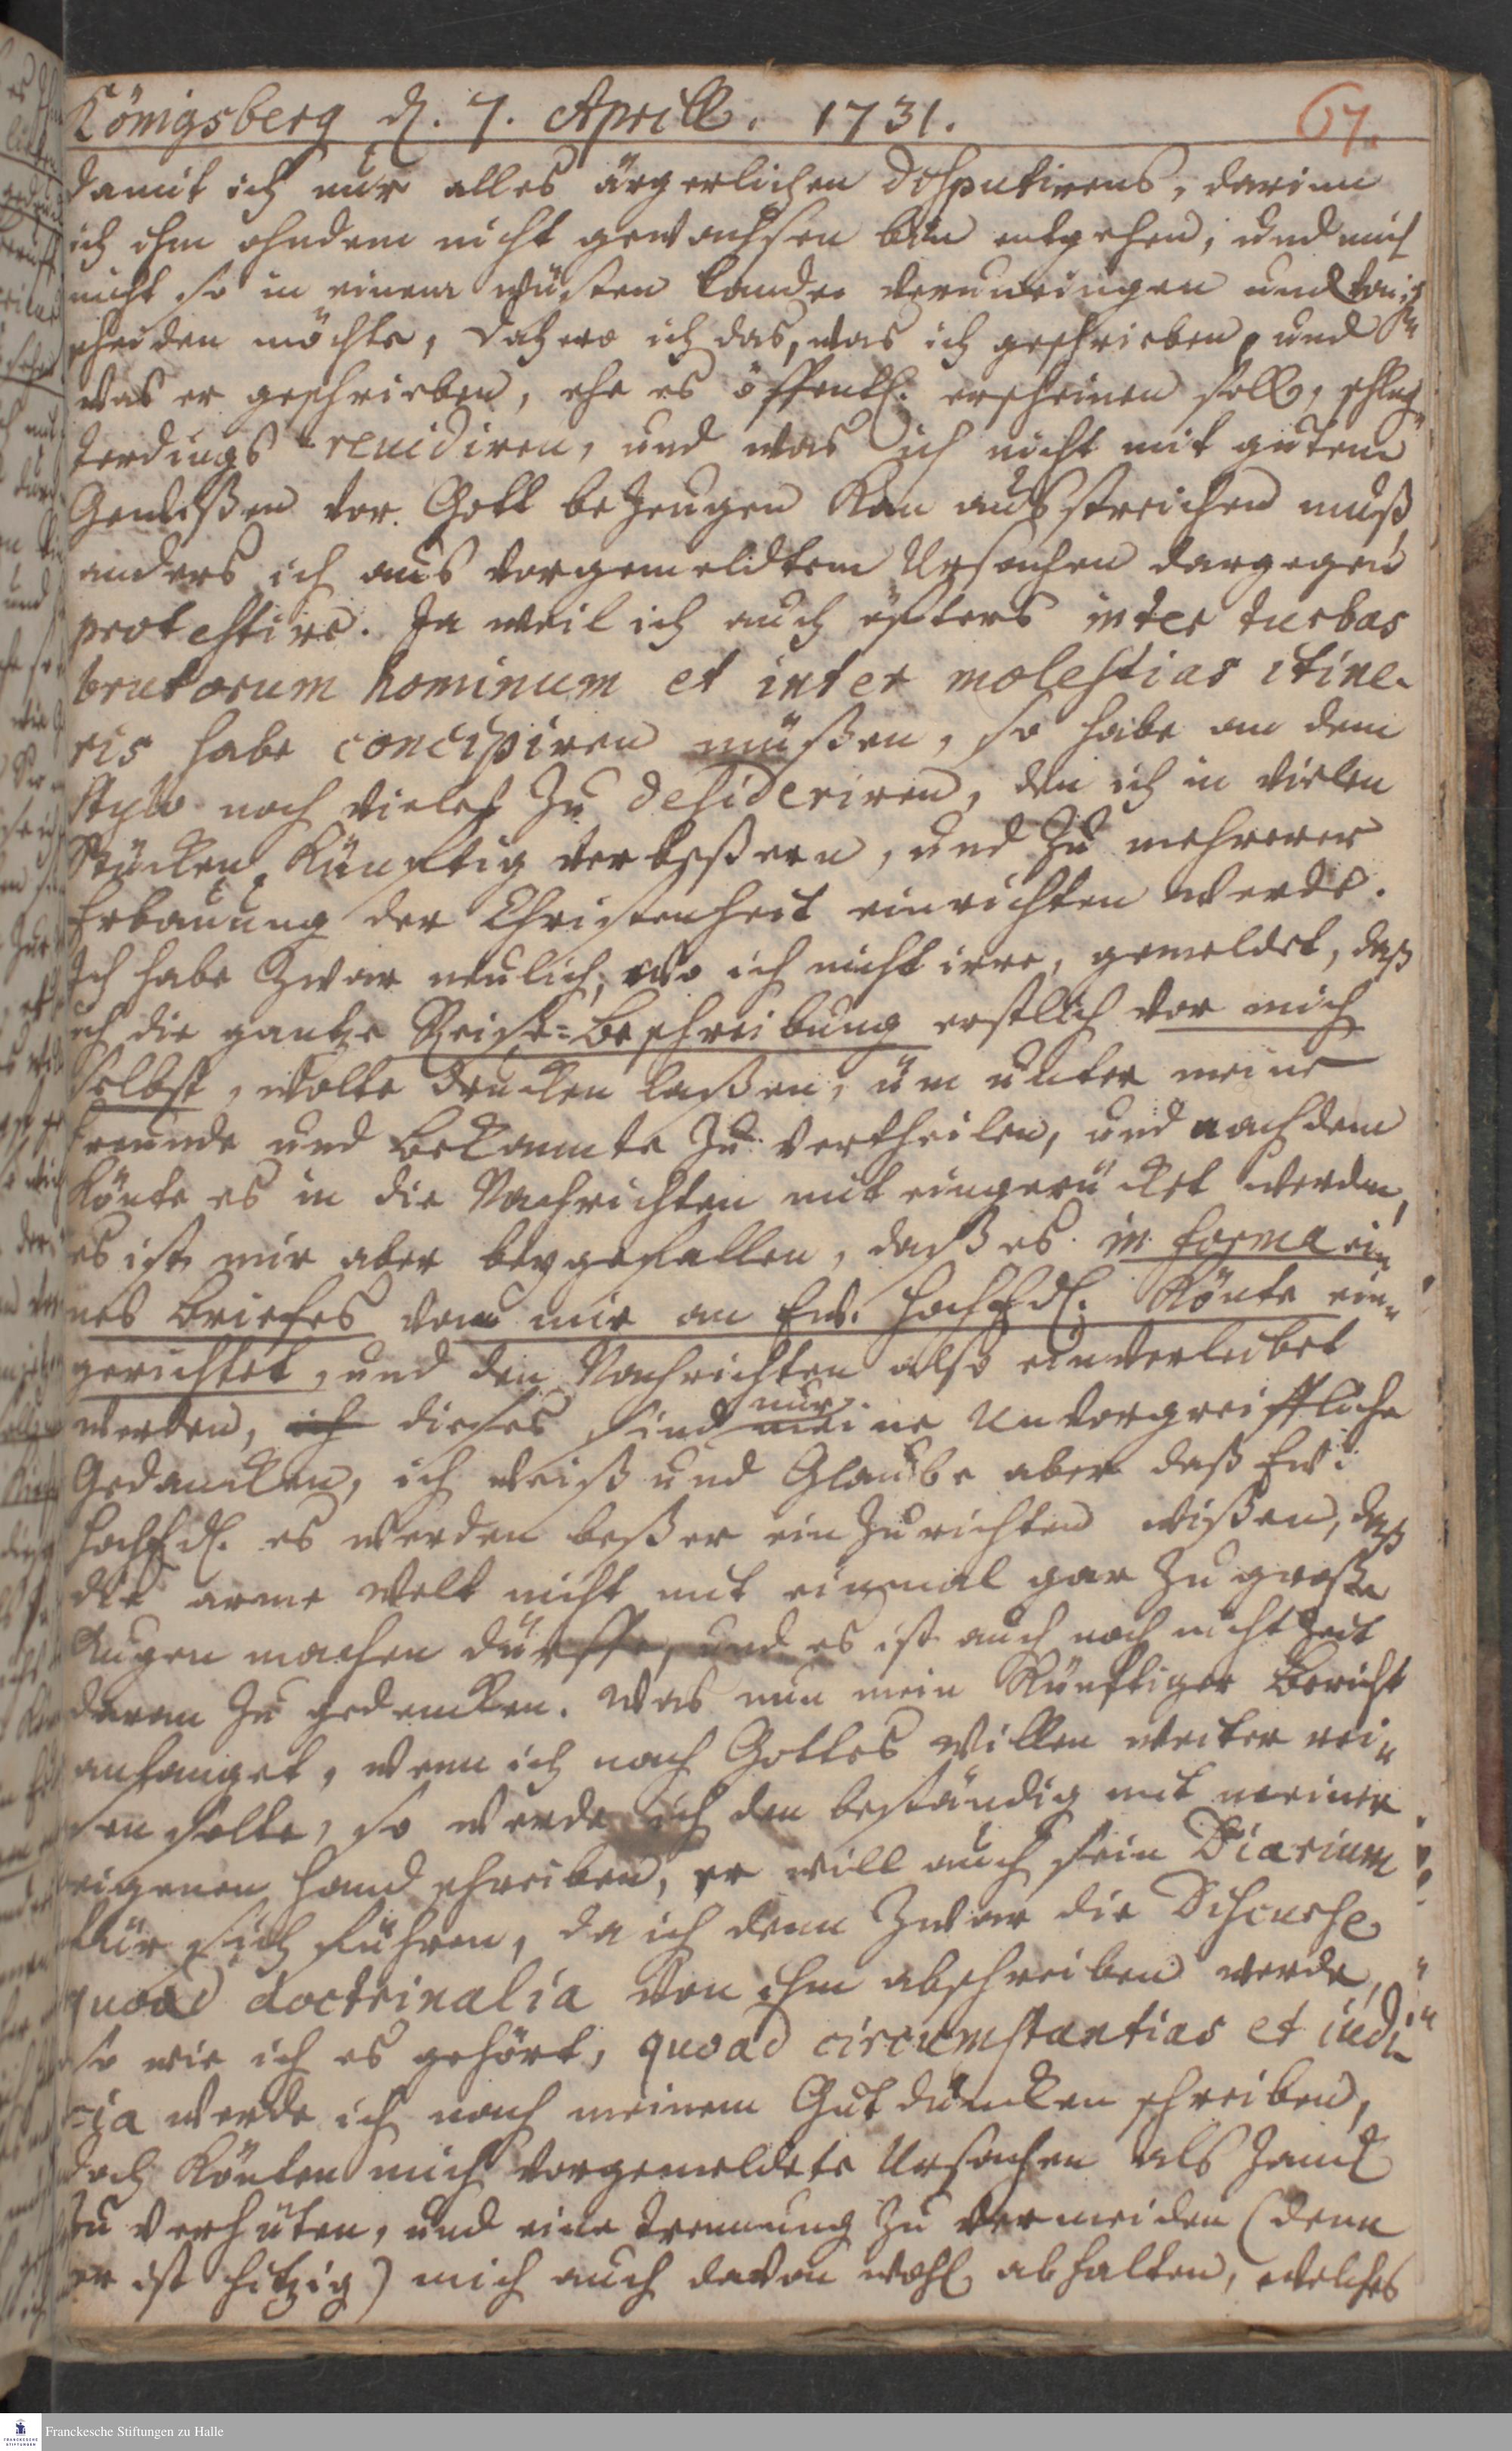 Königsberg d. 7. Aprill. 1731.
67.
damit ich nur alles ärgerlichen Disputirens, darinn
ich ihm ohndem nicht gewachsen bin entgehen, und mich
nicht so in einem wüsten Lande veruneinigen und
scheiden möchte, dahero ich das, was ich geschrieben, und
was er geschrieben, ehe es öffentl. erscheinen soll, schlech„
terdings revidiren, und was ich nicht mit gutem
Gewißen vor Gott bezeugen kan ausstreichen muß
anders ich aus vorgemeldtem Ursachen dargegen
protestire. Ja weil ich auch öfters inter turbas
brutorum hominum et inter molestias itine-
ris habe concipiren müßen, so habe an dem
Stylo noch vieles zu desideriren, den ich in vielen
Stücken künftig verbeßern, und zu mehrerer
Erbauung der Christenheit einrichten werde.
Ich habe zwar neulich, wo ich nicht irre, gemeldet, daß
ich die gantze Reise-Beschreibung erstlich vor mich
selbst, wolte drucken laßen, um unter meine
Freunde und Bekannte zu vertheilen, und nachdem
könte es in die Nachrichten mit eingerücket werden,
es ist mir aber beygefallen, daß es in forma ei„
nes Briefes von mir an Ew. HochEdl. könte ein„
gerichtet, und den Nachrichten also einverleibet
werden, ich dieses sind nur meine Unvorgreiffliche
Gedancken, ich weiß und Glaube aber daß Ew.
HochEdl. es werden beßer einzurichten wißen, daß
die arme Welt nicht mit einmal gar zu große
Augen machen dürffe, und es ist auch noch nicht Zeit
daran zu gedencken. Was nun mein künftiger Bericht
anlanget, wenn ich nach Gottes Willen weiter rei„
sen solte, so werde ich den beständig mit meiner
eigenen Hand schreiben, er will auch sein Diarium
für sich führen, da ich denn zwar die Discurse
quoad doctrinalia von ihm abschreiben werde,
so wie ich es gehört, quoad circumstantias et judi„
cia werde ich nach meinem Gutdüncken schreiben,
doch könten mich vorgemeldete Ursachen als Zanck
zu verhüten, und eine Trennung zu vermeiden (denn
er ist hitzig) mich auch davon wohl abhalten, welches
Franckesche Stiftungen zu Halle